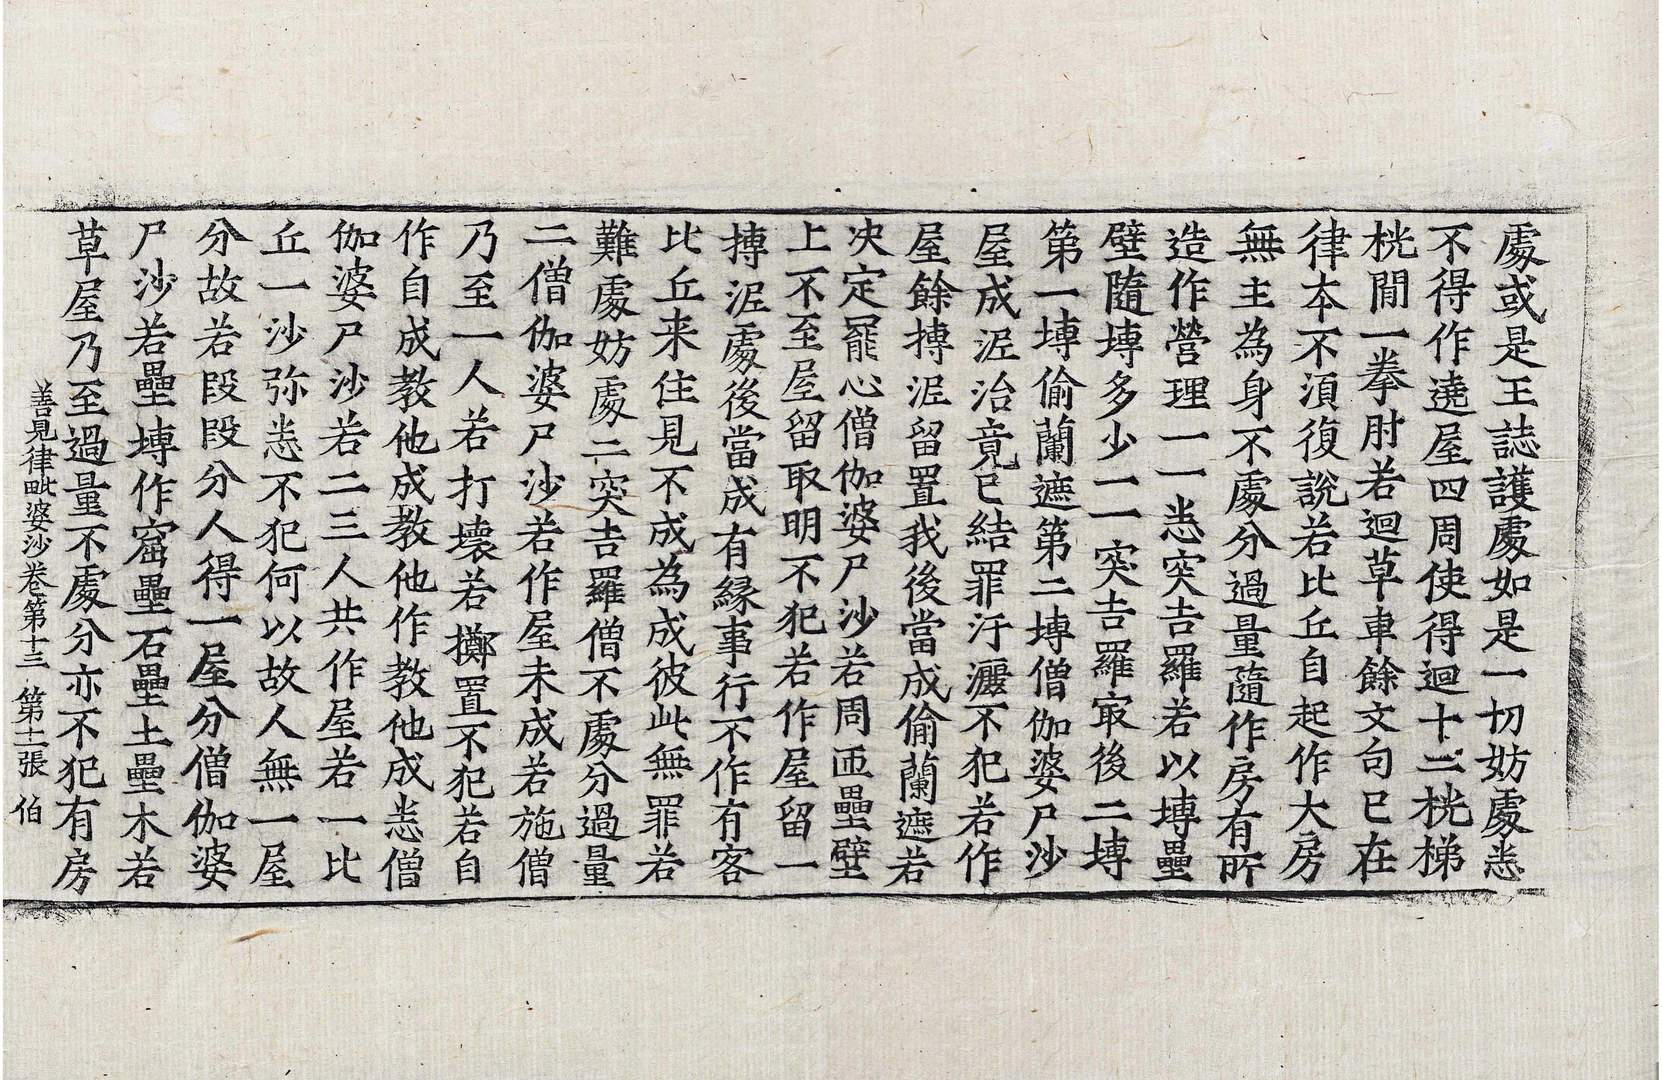 處或是王誌護處如是一切妨處悉
不得作遶屋四周使得迴十二桄梯
桄間一拳肘若迴草車餘文句已在
律本不須復說若比丘自起作大房
無主為身不處分過量隨作房有所
造作營理一一悉突吉羅若以塼壘
壁隨塼多少一一突吉羅㝡後二塼
第一塼偷蘭遮第二塼僧伽婆尸沙
屋成泥治竟已結罪汙灑不犯若作
屋餘摶泥留置我後當成偷蘭遮若
决定罷心僧伽婆尸沙若周匝壘壁
上不至屋留取明不犯若作屋留一
摶泥處後當成有緣事行不作有客
比丘来住見不成為成彼此無罪若
難處妨處二突吉羅僧不處分過量
二僧伽婆尸沙若作屋未成若施僧
乃至一人若打壞若擲置不犯若自
作自成教他成教他作教他成悉僧
伽婆尸沙若二三人共作屋若一比
丘一沙弥悉不犯何以故人無一屋
分故若段段分人得一屋分僧伽婆
尸沙若壘塼作窟壘石壘土壘木若
草屋乃至過量不處分亦不犯有房
善見律毗婆沙卷第十三 第十二張 伯